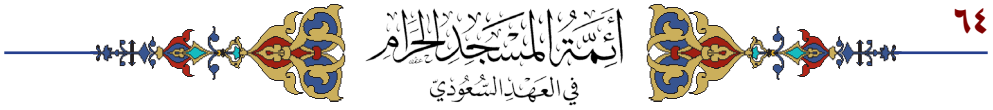 ٦٤
أَئِمَّةُ المَسْجِدِ الحَرَامِ
فِي العَهْدِ السُّعُودِيّ